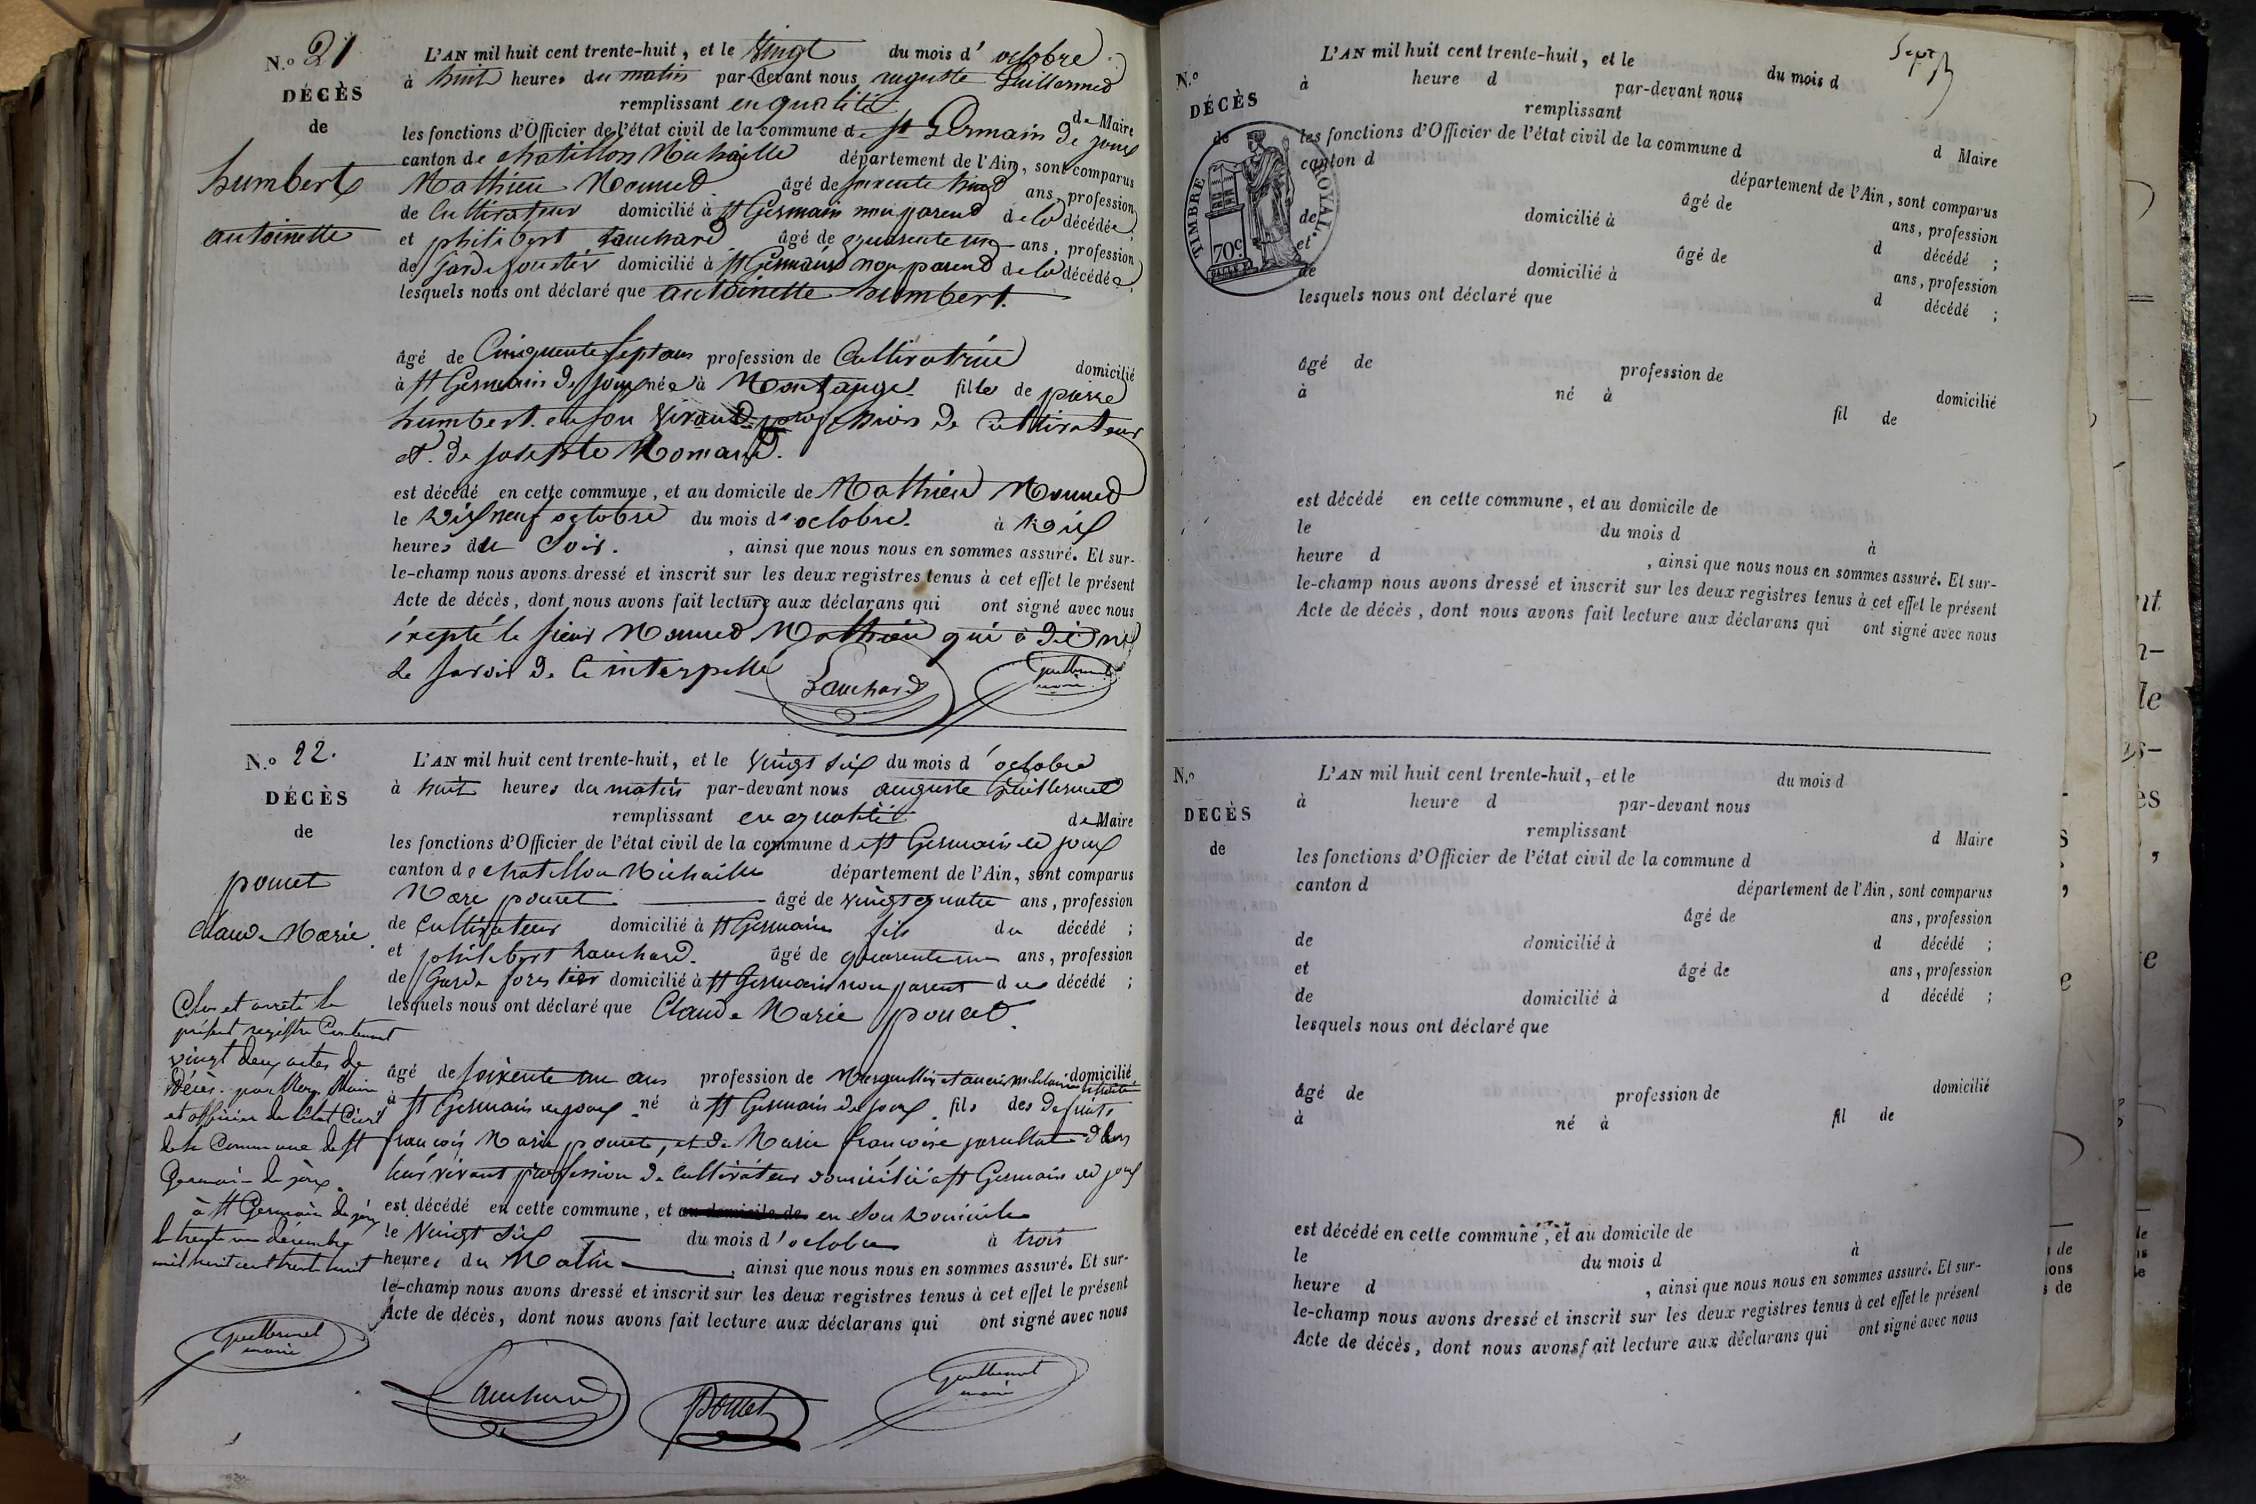 N.º 21
DÉCÈS
de
humbert
antoinette
L'AN mil huit cent trente-huit, et le Vingt du mois d' octobre
à huit heures du matin par-devant nous auguste Guillermet
remplissant en qualité de Maire
les fonctions d'Officier de l'état civil de la commune de St Germain de joux
canton de chatillon Michaille département de l'Ain, sont comparus
Mathieu âgé de soixente ans, profession
de Cultivateur domicilié à St Germain non parend de la décédée
et philibert âgé de quarente un ans, profession
de garde forestier domicilié à St Germain non parend de la décédée
lesquels nous ont déclaré que antoinette humbert.
âgé de Cinquente sept ans profession de Cultivatrice domicilié
à St Germain de joux née à Montanges fille de pierre
humbert en son vivant profession de cultivateur
et de josephte Romand.
est décédé en cette commune, et au domicile de Mathieu
le dix neuf octobre du mois d' octobre. à dix
heures du Soir. , ainsi que nous nous en sommes assuré. Et sur-
le-champ nous avons dressé et inscrit sur les deux registres tenus à cet effet le présent
Acte de décès, dont nous avons fait lecture aux déclarans qui ont signé avec nous
éxepté le sieur Mathieu qui a dit ne
le savoir de ce interpellé
Guillermet
maire
N.º 22.
DÉCÈS
de
ponet
Claude Marie
L'AN mil huit cent trente-huit, et le Vingt six du mois d' octobre
à huit heures du matin par-devant nous auguste Guillermet
remplissant en qualité de Maire
les fonctions d'Officier de l'état civil de la commune de St Germain de joux
canton de chatillon Michaille département de l'Ain, sont comparus
Marie ponet âgé de vingt quatre ans, profession
de Cultivateur domicilié à St Germain fils du décédé ;
et philibert âgé de quarente un ans, profession
de Garde forestier domicilié à St Germain non parent du décédé ;
lesquels nous ont déclaré que Claude Marie ponet.
âgé de soixente un ans profession de et ancien militaire domicilié
à St Germain de joux né à St Germain de joux fils des defunts
françois Marie ponet, et de Marie françoise dans
leur vivant profession de cultivateur domicilié à St Germain de joux
est décédé en cette commune, et au domicile de en son domicile
le Vingt six du mois d' octobre à trois
heures du Matin , ainsi que nous nous en sommes assuré. Et sur-
le-champ nous avons dressé et inscrit sur les deux registres tenus à cet effet le présent
Acte de décès, dont nous avons fait lecture aux déclarans qui ont signé avec nous
Clos et arrêté le
présent registre Contenant
vingt deux actes de
Décès. par Nous Maire
et officier de l'état Civil
de la Commune de St
Germain de joux.
à St Germain de joux
le trente un décembre
mil huit cent trente huit
Guillermet
maire
ponet
Guillermet
maire
N.º
DÉCÈS
de
TIMBRE ROYAL.
70c
L'AN mil huit cent trente-huit, et le du mois d
à heure d par-devant nous
remplissant d Maire
les fonctions d'Officier de l'état civil de la commune d
canton d département de l'Ain, sont comparus
âgé de ans, profession
de domicilié à d décédé ;
et âgé de ans, profession
de domicilié à d décédé ;
lesquels nous ont déclaré que
âgé de profession de domicilié
à né à fil de
est décédé en cette commune, et au domicile de
le du mois d à
heure d , ainsi que nous nous en sommes assuré. Et sur-
le-champ nous avons dressé et inscrit sur les deux registres tenus à cet effet le présent
Acte de décès, dont nous avons fait lecture aux déclarans qui ont signé avec nous
N.º
DÉCÈS
de
L'AN mil huit cent trente-huit, et le du mois d
à heure d par-devant nous
remplissant d Maire
les fonctions d'Officier de l'état civil de la commune d
canton d département de l'Ain, sont comparus
âgé de ans, profession
de domicilié à d décédé ;
et âgé de ans, profession
de domicilié à d décédé ;
lesquels nous ont déclaré que
âgé de profession de domicilié
à né à fil de
est décédé en cette commune, et au domicile de
le du mois d à
heure d , ainsi que nous nous en sommes assuré. Et sur-
le-champ nous avons dressé et inscrit sur les deux registres tenus à cet effet le présent
Acte de décès, dont nous avons fait lecture aux déclarans qui ont signé avec nous